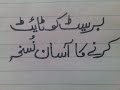 بریسٹ کو ٹائیٹ
کرنے کا آسان نُسخہ